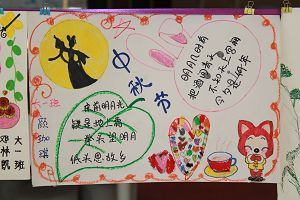 中秋节
明月几时有
把酒问青天
不知天上宫阙
今夕是何年
床前明月光
疑是地上霜
举头望明月
低头思故乡
大一班